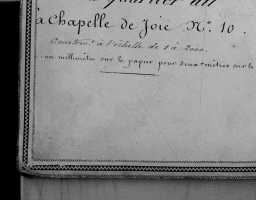 quartier du
à Chapelle de Joie N.º 10.
Construit à l'échelle de 1 à 2000.
un millimètre sur le papier pour deux mètres sur le